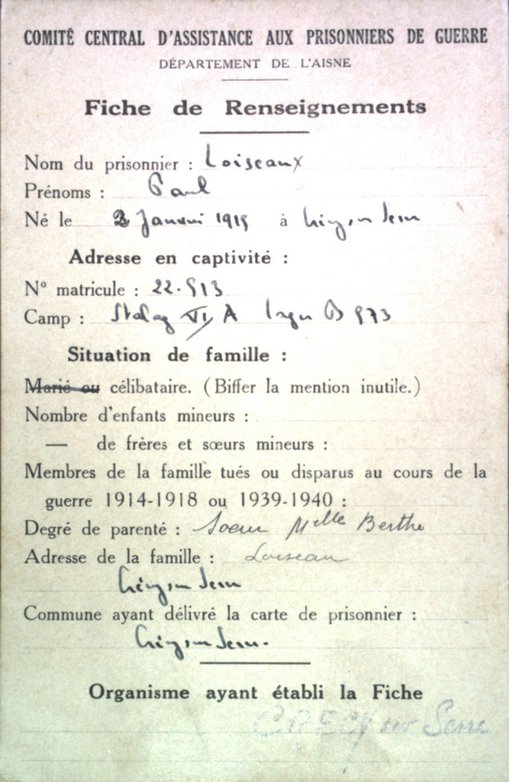 COMITÉ CENTRAL D'ASSISTANCE AUX PRISONNIERS DE GUERRE
DÉPARTEMENT DE L'AISNE
Fiche de Renseignements
Nom du prisonnier : Loiseaux
Prénoms : Paul
Né le 2 Janvier 1919 à Crécy sur Serre
Adresse en captivité :
N° matricule : 22.913
Camp : Stalag VI A Lager B 973
Situation de famille :
Marié ou célibataire. (Biffer la mention inutile.)
Nombre d'enfants mineurs :
— de frères et sœurs mineurs :
Membres de la famille tués ou disparus au cours de la
guerre 1914-1918 ou 1939-1940 :
Degré de parenté : Soeur Melle Berthe
Adresse de la famille : Loiseau
Crécy sur Serre
Commune ayant délivré la carte de prisonnier :
Crécy sur Serre.
Organisme ayant établi la Fiche
CRECY sur Serre